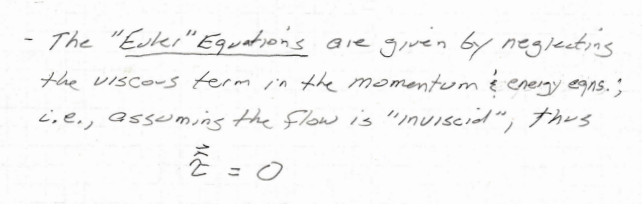 - The "Euler" Equations are given by neglecting
the viscous term in the momentum & energy eqns.;
i.e., assuming the flow is "inviscid", thus
τ⃗⃗ = 0